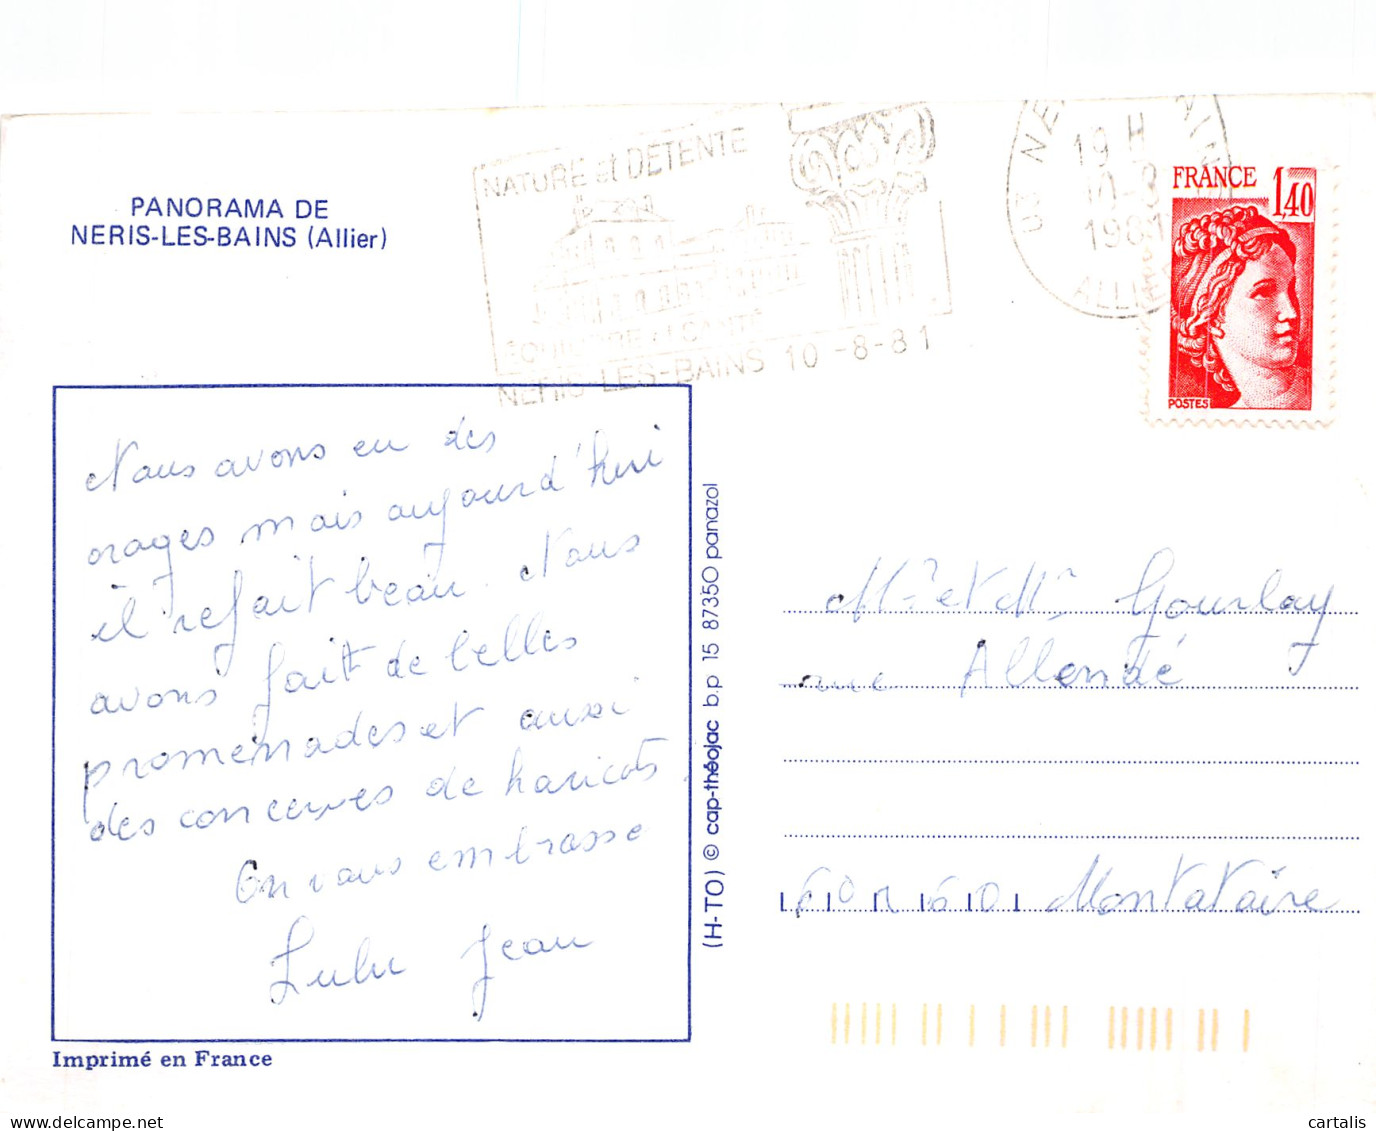 PANORAMA DE
NERIS-LES-BAINS (Allier)
NATURE et DETENTE
NERIS-LES-BAINS 10-8-81
19 H
10-8
1981
ALLIER
FRANCE 1,40
POSTES
Nous avons eu des
orages mais aujourd'hui
il refait beau. Nous
avons fait de belles
promenades et aussi
des conserves de haricots.
On vous embrasse
Lulu Jean
Imprimé en France
(H-TO) © cap-théojac b.p 15 87350 panazol
Mr et Mme Gourlay
rue Allendé
60160 Montataire
cartalis